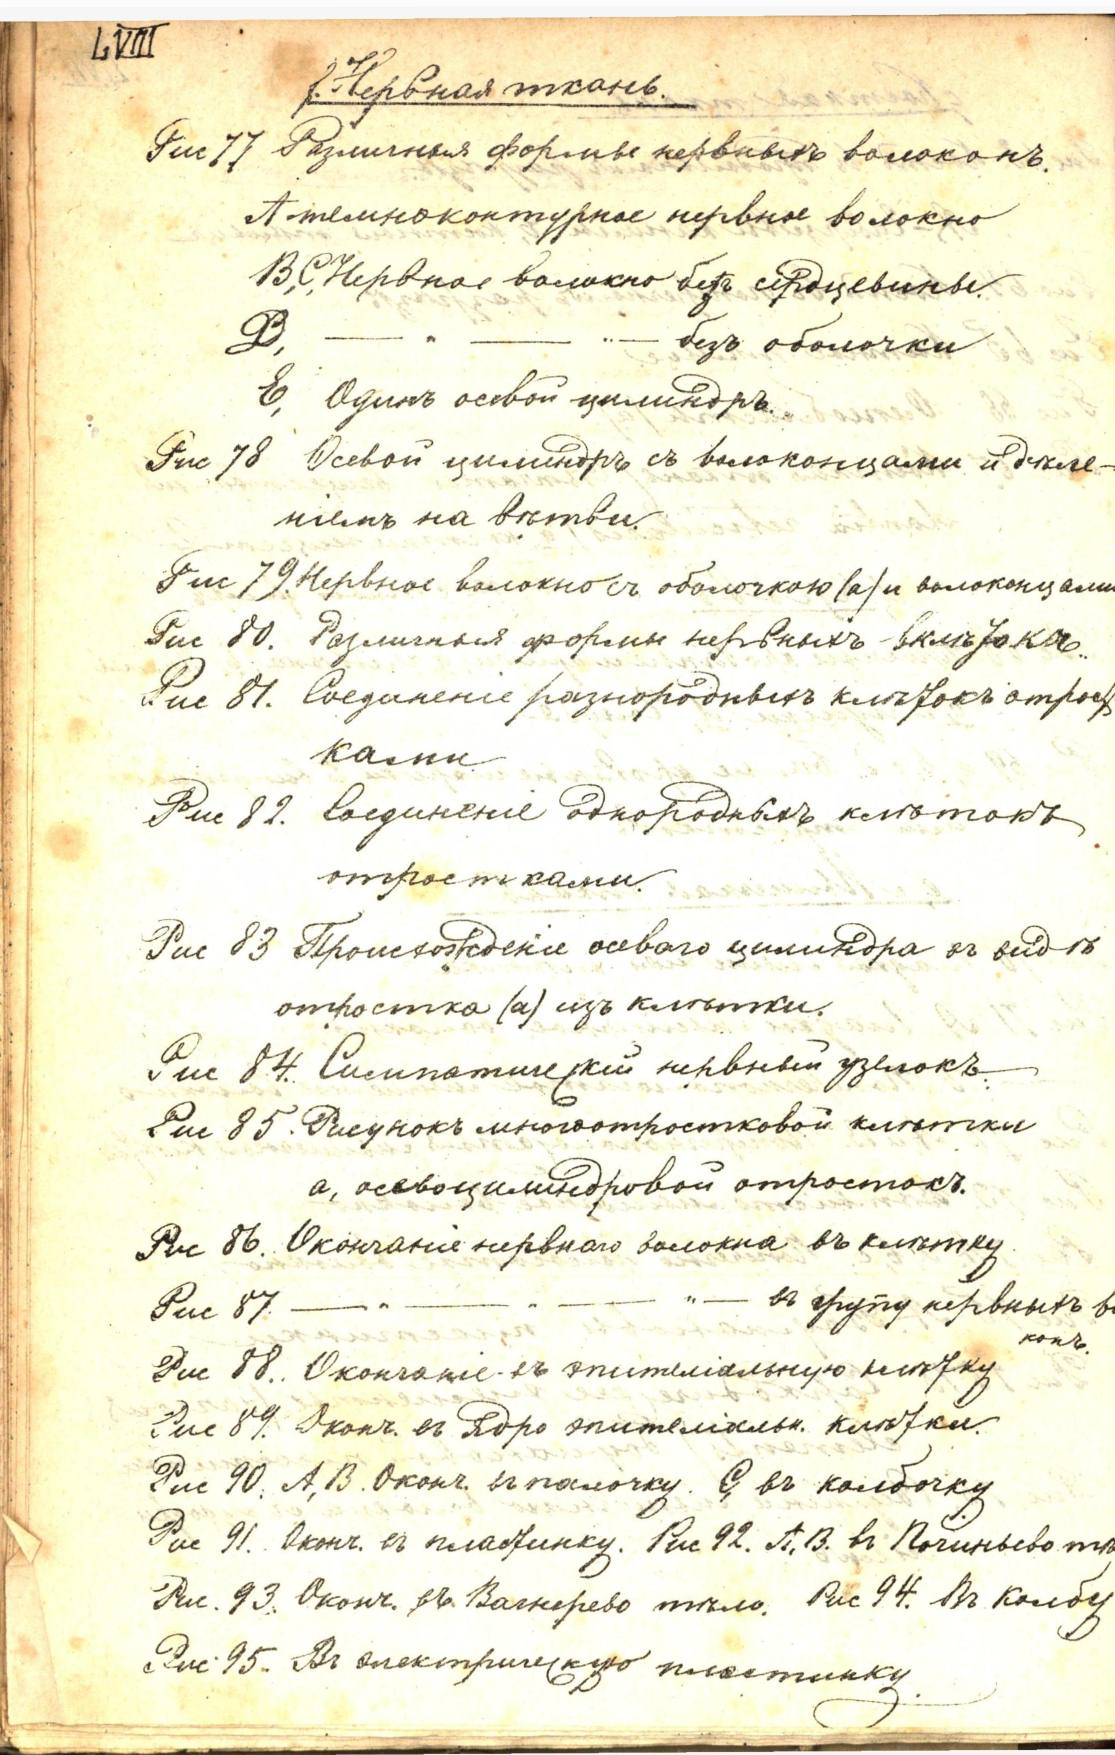 LVIII
f. Нервная ткань.
Рис 77 Различныя формы нервныхъ волоконъ.
А темноконтурное нервное волокно
В, С, Нервное волокно безъ сердцевины.
D, — " — " — безъ оболочки
Е, Одинъ осевой цилиндръ.
Рис 78 Осевой цилиндръ съ волоконцами и дѣле-
ніемъ на вѣтви.
Рис 79. Нервное волокно съ оболочкою (а) и волоконцами
Рис 80. Различныя формы нервныхъ клѣтокъ.
Рис 81. Соединеніе разнородныхъ клѣтокъ отрост
ками
Рис 82. Соединеніе однородныхъ клѣтокъ
отростками.
Рис 83 Происхожденіе осеваго цилиндра въ видѣ
отростка (а) изъ клѣтки.
Рис 84. Симпатическій нервный узелокъ.
Рис 85. Рисунокъ многоотростковой клѣтки
а, осевоцилиндровой отростокъ.
Рис 86. Окончаніе нервнаго волокна въ клѣтку
Рис 87. — " — " — " — въ групу нервныхъ во
конъ.
Рис 88. Окончаніе въ эпителіальную клѣтку
Рис 89. Оконч. въ Ядро эпителіальн. клѣтки.
Рис 90. А, В. Оконч. въ палочку. С, въ колбочку
Рис 91. Оконч. въ пластинку. Рис 92. А, В. въ Починьево тѣ
Рис. 93. Оконч. въ Вагнерево тѣло. Рис 94. Въ колбу
Рис 95. Въ электрическую пластинку.